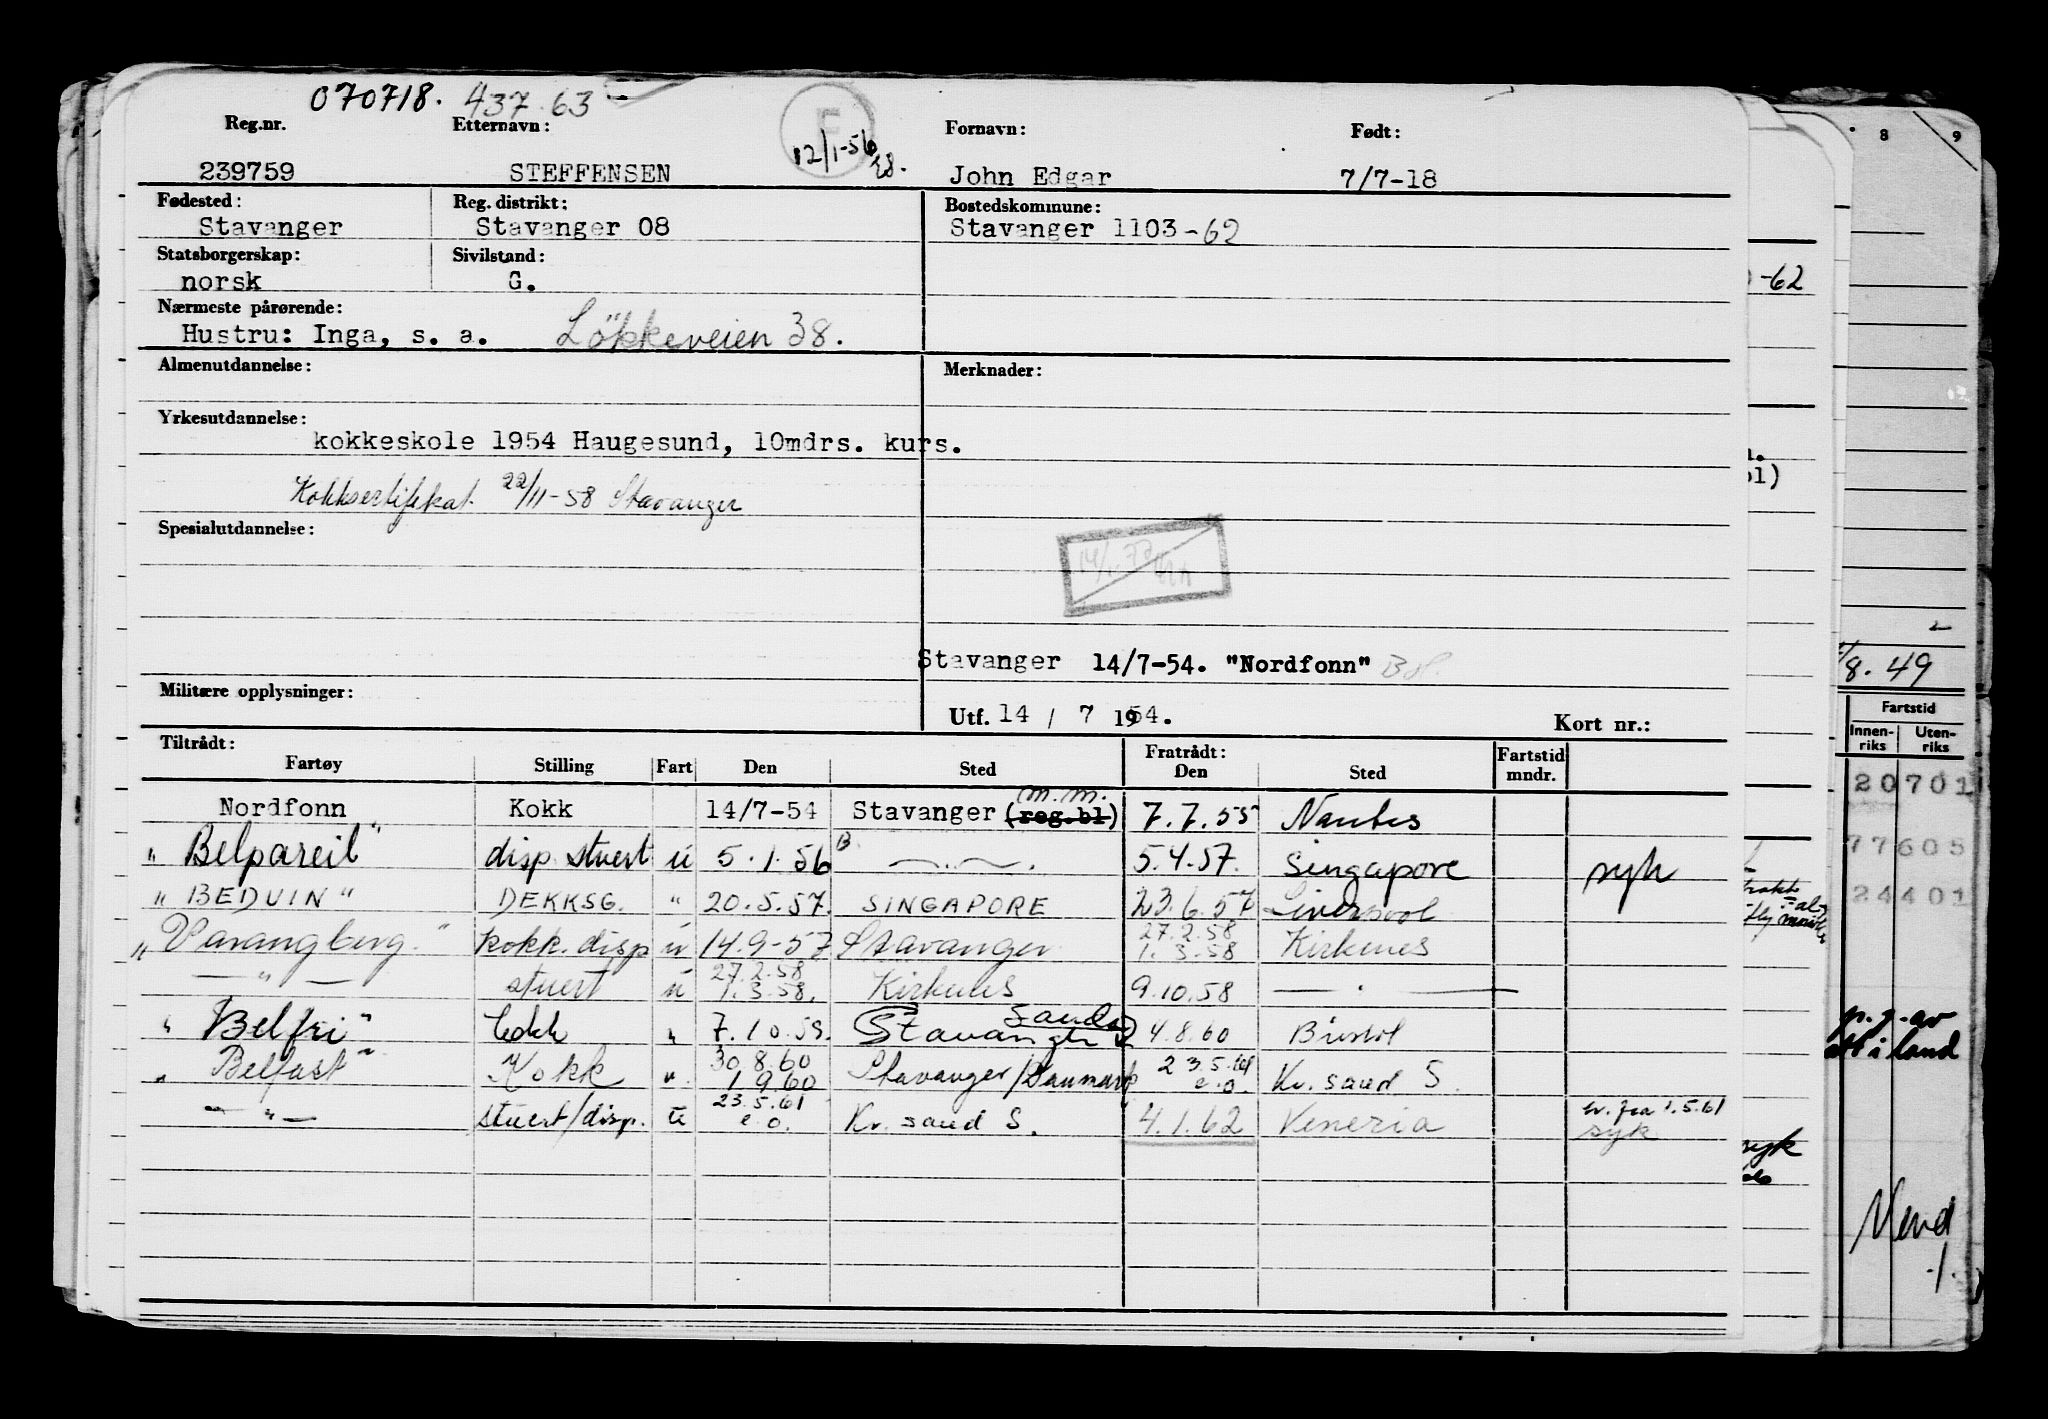 070718. 437 63
Reg.nr. Etternavn: Fornavn: Født:
12/1-56
239759 STEFFENSEN John Edgar 7/7-18
Fødested: Reg. distrikt: Bostedskommune:
Stavanger Stavanger 08 Stavanger 1103-62
Statsborgerskap: Sivilstand:
norsk G.
Nærmeste pårørende:
Hustru: Inga, s. a. Lökkeveien 38.
Almenutdannelse: Merknader:
Yrkesutdannelse:
kokkeskole 1954 Haugesund, 10mdrs. kurs.
Kokksertifikat 22/11-58 Stavanger
Spesialutdannelse:
Stavanger 14/7-54. "Nordfonn"
Militære opplysninger:
Utf. 14 / 7 1954. Kort nr.:
Tiltrådt: Fratrådt:
Fartøy Stilling Fart Den Sted Den Sted Fartstid mndr.
Nordfonn Kokk 14/7-54 Stavanger (reg.bl) m.m. 7.7.55 Nantes
"Belpareil" disp stuert u 5.1.56 B. —〃—. 5.4.57. Singapore syk
"BEDUIN" DEKKSG. " 20.5.57. SINGAPORE 23.6.57 Liverpool
"Varangberg." kokk. disp u 14.9-57 Stavanger 27.2.58 1.3.58 Kirkenes
— " — stuert u 27.2.58 1.3.58. Kirkenes 9.10.58 — " —
"Belfri" kokk " 7.10.59. Stavanger 4.8.60 Bristol
"Belfast" Kokk ". 30.8.60 1.9.60 Stavanger/Danmark 23.5.61 e.o. Kr. sand S.
— " — stuert/disp. u 23.5.61 e.o. Kr. sand S. 4.1.62 Venezia
fra 1.5.61
syk
8 9
-62
8.49
Fartstid
Innen-riks Uten-riks
20701
77605
24401
att i land
syk